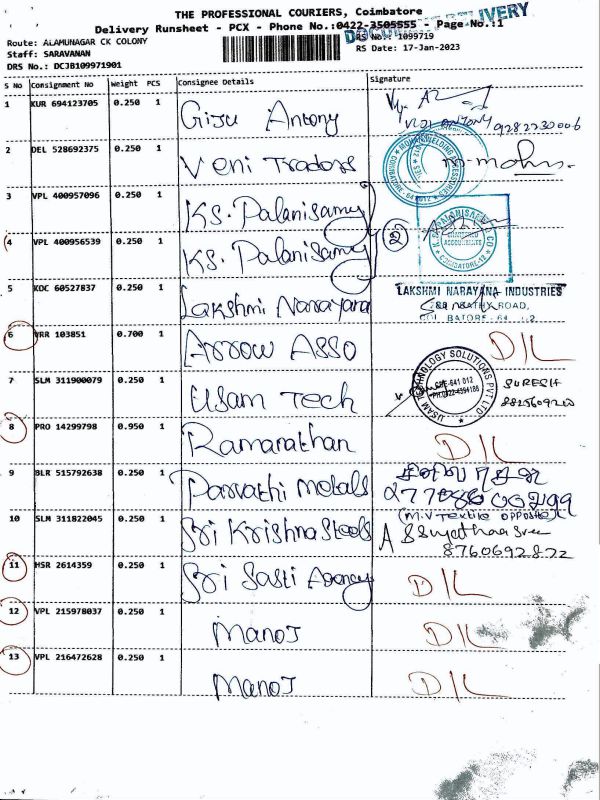 THE PROFESSIONAL COURIERS, Coimbatore
Delivery Runsheet - PCX - Phone No.:0422-3505555 - Page No.:1
DELIVERY
Route: ALAMUNAGAR CK COLONY
Staff: SARAVANAN
DRS No.: DCJB109971901
No.: 1099719
RS Date: 17-Jan-2023
S No Consignment No Weight PCS Consignee Details Signature
1 KUR 694123705 0.250 1 Giju Antony
VIJI ANTONY 9282230006
2 DEL 528692375 0.250 1 Veni Traders
3 VPL 400957096 0.250 1 KS. Palanisamy
4 VPL 400956539 0.250 1 KS. Palanisamy (2)
CHARTERED ACCOUNTANTS
COIMBATORE-12
5 KOC 60527837 0.250 1 Lakshmi Narayana
LAKSHMI NARAYANA INDUSTRIES
6 URR 103851 0.700 1 Arrow Asso D/L
7 SLM 311900079 0.250 1 Usam Tech
USAM TECHNOLOGY SOLUTIONS PVT LTD
CBE-641 012
PH:0422-4394186
SURESH
8 PRO 14299798 0.950 1 Ramanathan D/L
9 BLR 515792638 0.250 1 Parvathi Metals
10 SLM 311822045 0.250 1 Sri Krishna Steels
(M.V Textile opposite)
8760692822
11 HSR 2614359 0.250 1 Sri Sasti Agency D/L
12 VPL 215978037 0.250 1 Manoj D/L
13 VPL 216472628 0.250 1 Manoj D/L